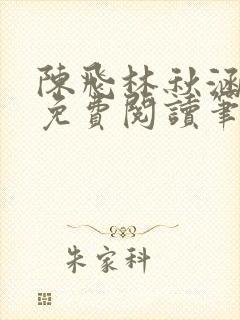 陳飛林秋涵
免費閱讀筆
朱家科